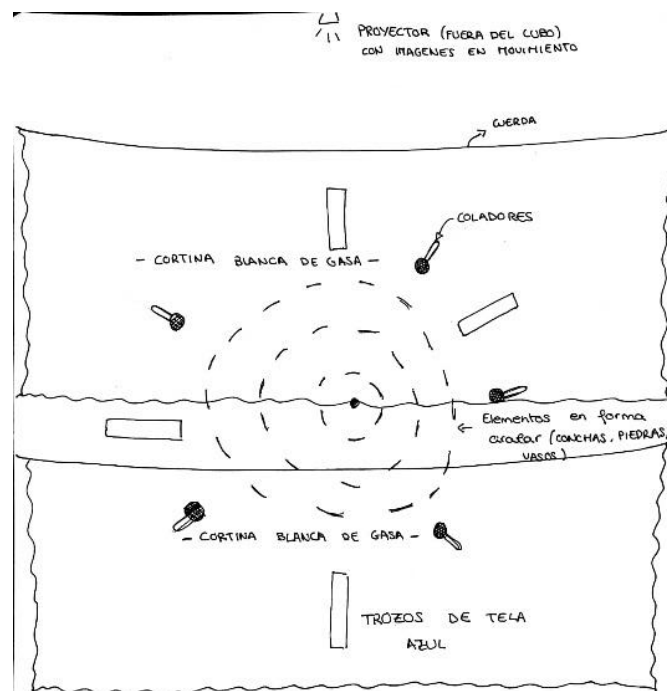 PROYECTOR (FUERA DEL CUBO)
CON IMAGENES EN MOVIMIENTO
CUERDA
COLADORES
- CORTINA BLANCA DE GASA -
Elementos en forma
circular (CONCHAS, PIEDRAS,
VASOS)
- CORTINA BLANCA DE GASA -
TROZOS DE TELA
AZUL